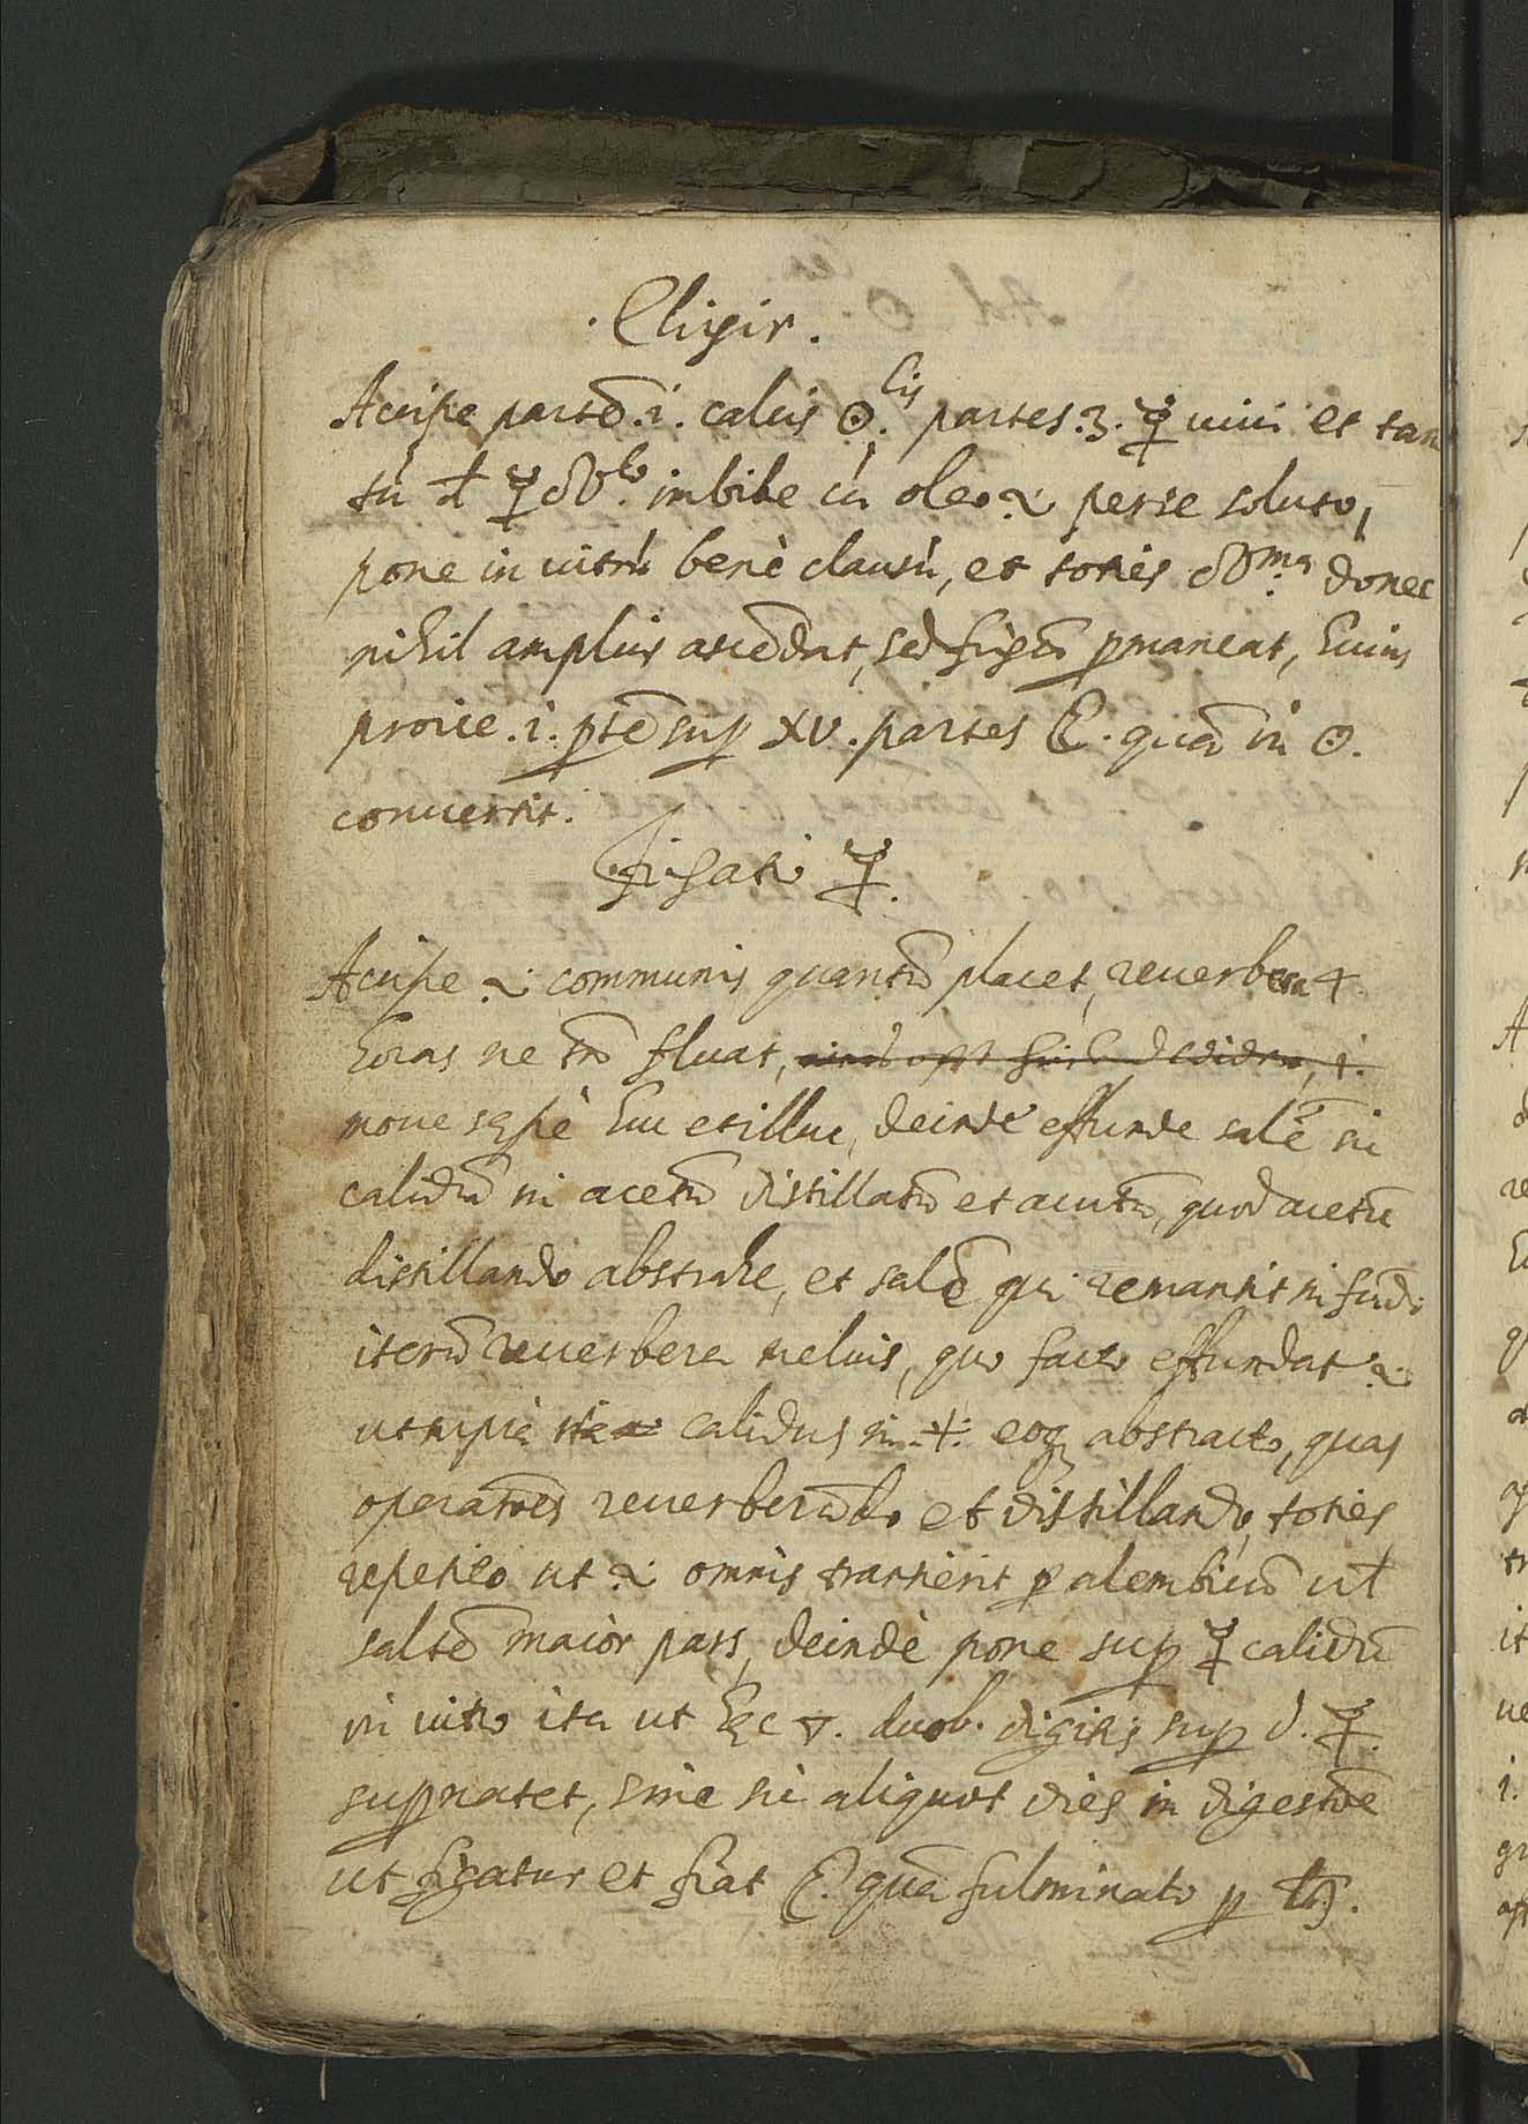 . Elixir .
Accipe partē .i. calcis ☉lis. partes .3. ☿ uiui et tan
tū d ☿ imbibe cū oleo perse soluto,
pone in uitrū benè clausū, et toties donec
nihil amplius ascēdat, sed fixū p̱maneat, huius
proiice .i. p̱tē sup̱ XV. partes ☾. quā in ☉.
conuertit.
Fixatio ☿.
Accipe communis quantū placet, reuerbera 4
horas ne tñ fluat,
moue sępè huc et illuc, deindè effunde salē sic
calidū in acetū distillatū et acutū, quod acetū
distillando abstrahe, et salē qui remansit in fūdo
iterū reuerbera uelut, quo facto effundat
ut supià calidus in eoq̱ abstracto, quas
operatōes reuerberādo et distillando, toties
repetito ut omnis transierit p̱ alembicū ul
saltē maior pars, deindè pone sup̱ ☿ calidū
in uitro ita ut hęc duob. digitis sup̱ d. ☿.
sup̱natet, sine sic aliquot dies in digestōe
ut figatur et fiat ☾. quā fulminato p̱ ♄.